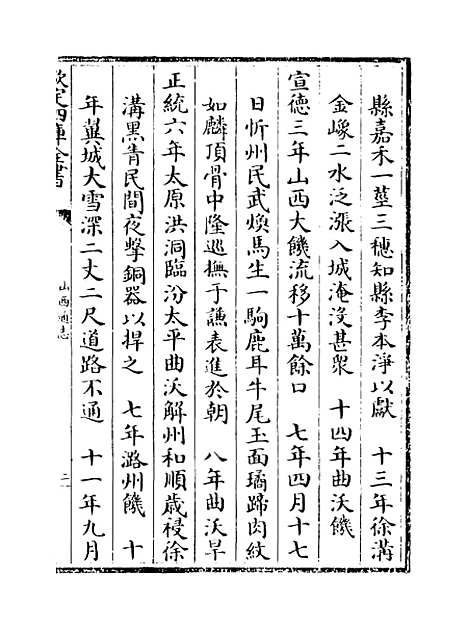 縣嘉禾一莖三穗知縣李本淨以獻　十三年徐溝
金㠖二水泛漲入城淹沒甚衆　十四年曲沃饑
宣德三年山西大饑流移十萬餘口　七年四月十七
日忻州民武煥馬生一駒鹿耳牛尾玉面瓊蹄肉紋
如麟頂骨中隆巡撫于謙表進於朝　八年曲沃旱
正統六年太原洪洞臨汾太平曲沃解州和順歲祲徐
溝黑眚民間夜擊銅器以捍之　七年潞州饑　十
年翼城大雪深二丈二尺道路不通　十一年九月
欽定四庫全書
山西通志